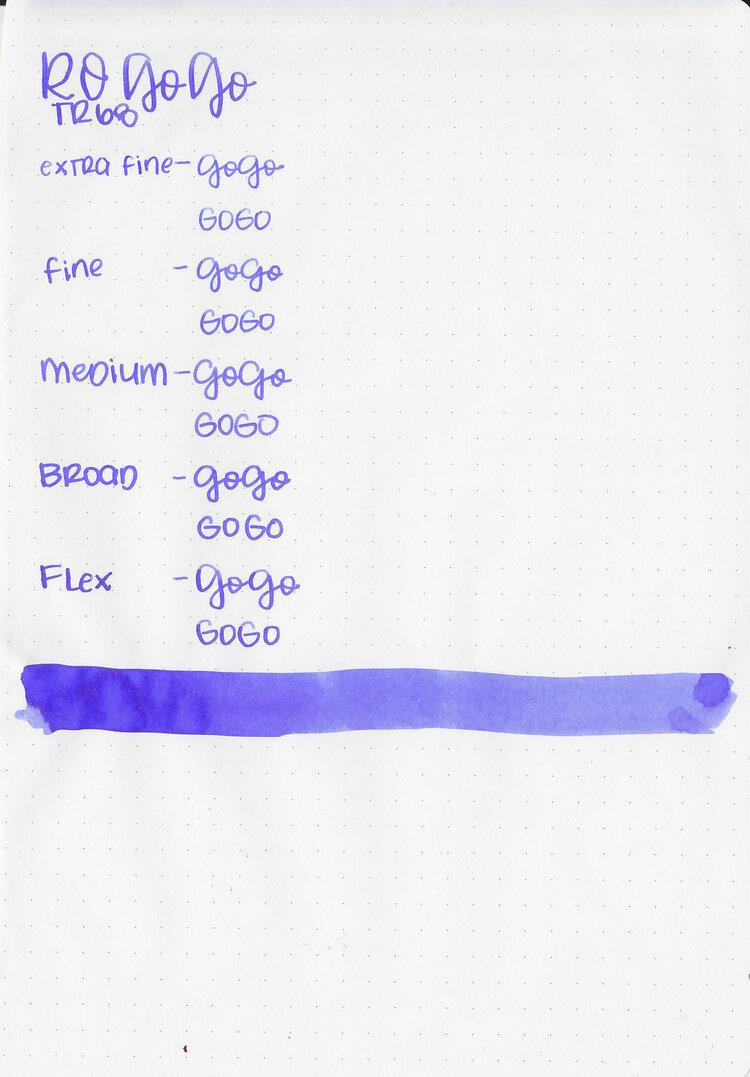 RO gogo
TR68
extra fine - gogo
GOGO
fine - gogo
GOGO
medium - gogo
GOGO
Broad - gogo
GOGO
Flex - gogo
GOGO